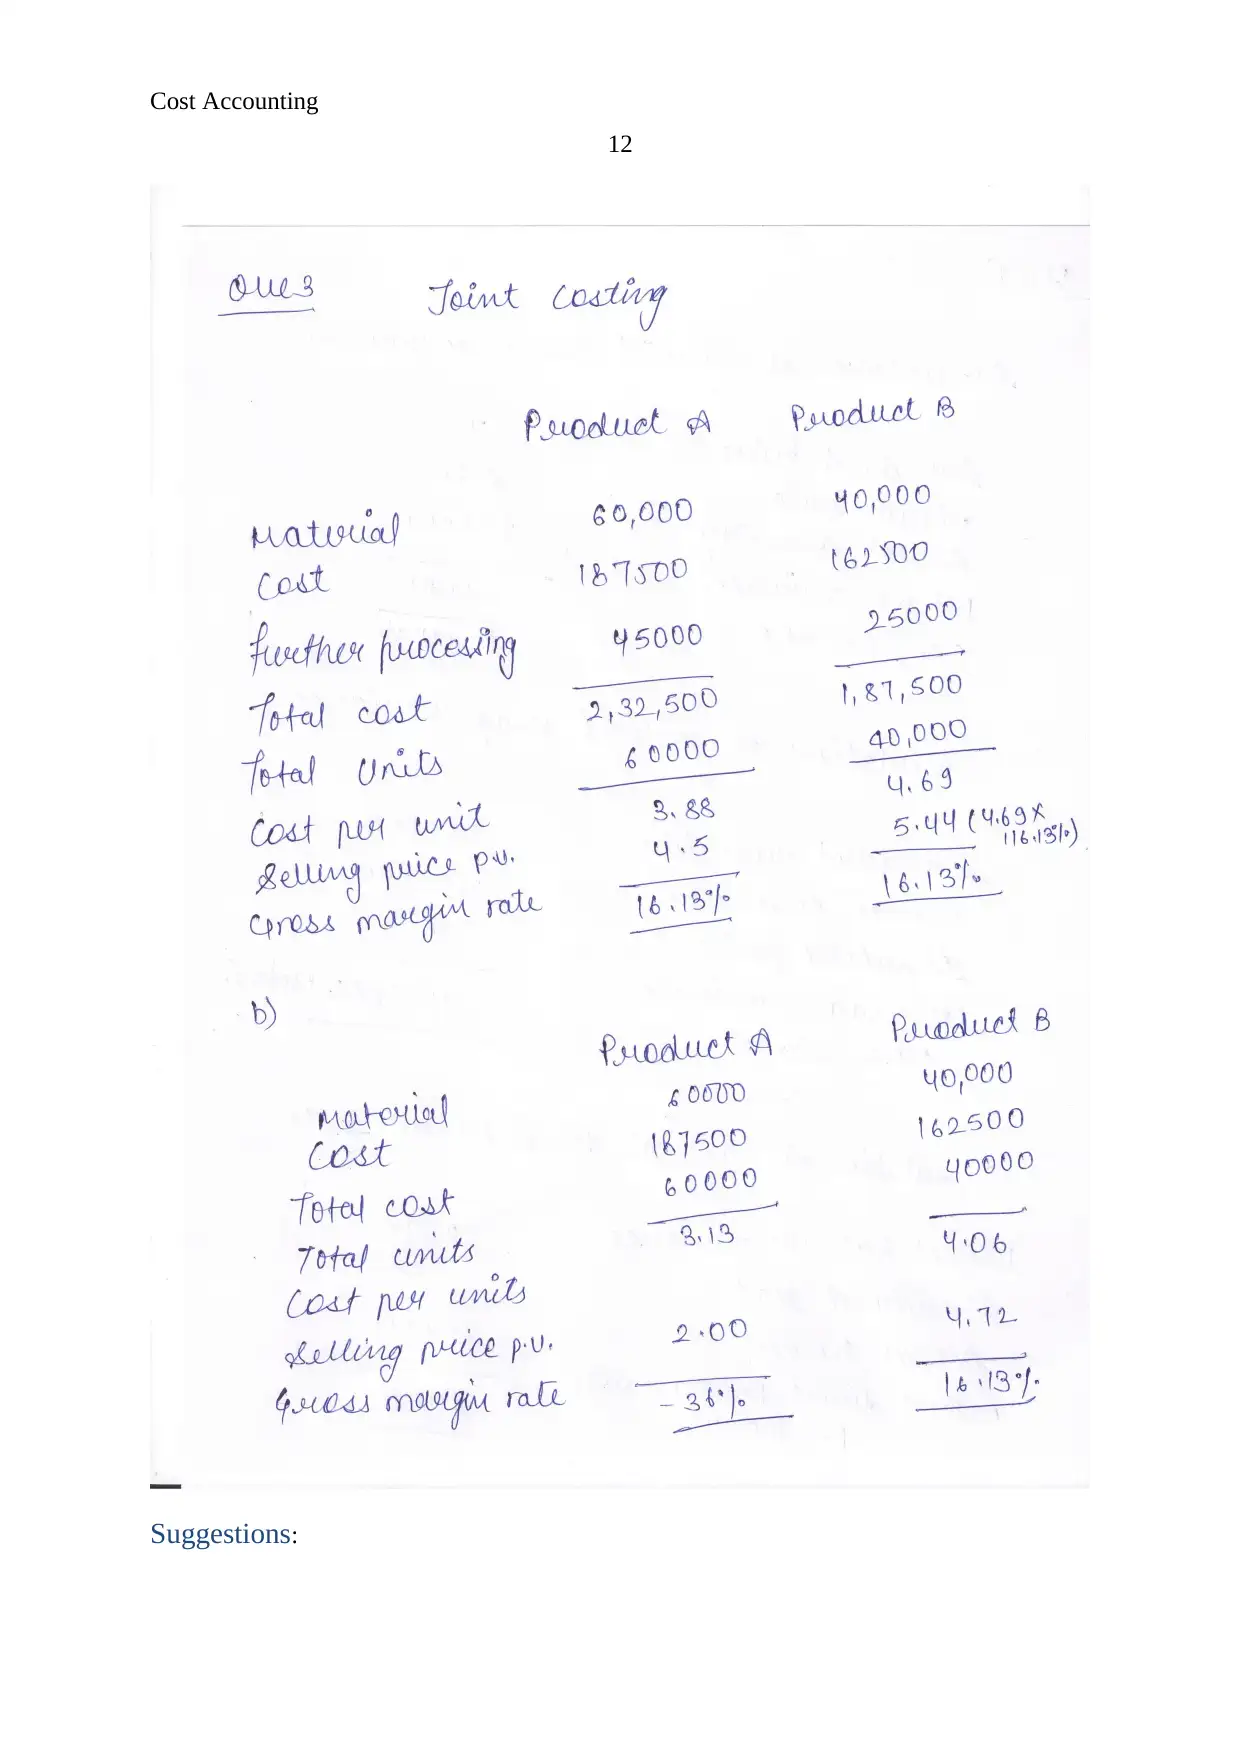 Cost Accounting
12
Que 3 Joint Costing
Product A Product B
Material 60,000 40,000
Cost 187500 162500
further processing 45000 25000
Total cost 2,32,500 1,87,500
Total Units 60000 40,000
Cost per unit 3.88 4.69
Selling price p.u. 4.5 5.44 (4.69 x 116.13%)
Gross margin rate 16.13% 16.13%
b)
Product A Product B
Material 60000 40,000
Cost 187500 162500
Total cost 60000 40000
Total units 3.13 4.06
Cost per units
Selling price p.u. 2.00 4.72
Gross margin rate - 36% 16.13%
Suggestions: